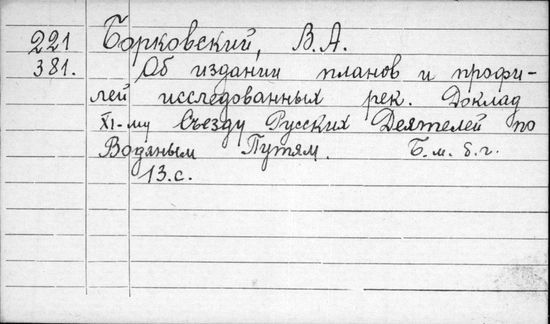 221 Борковский, В.А.
381. Об издании планов и профи-
лей исследованных рек. Доклад
XI-му Съезду Русских Деятелей по
Водяным Путям. Б.м. б.г.
13.с.